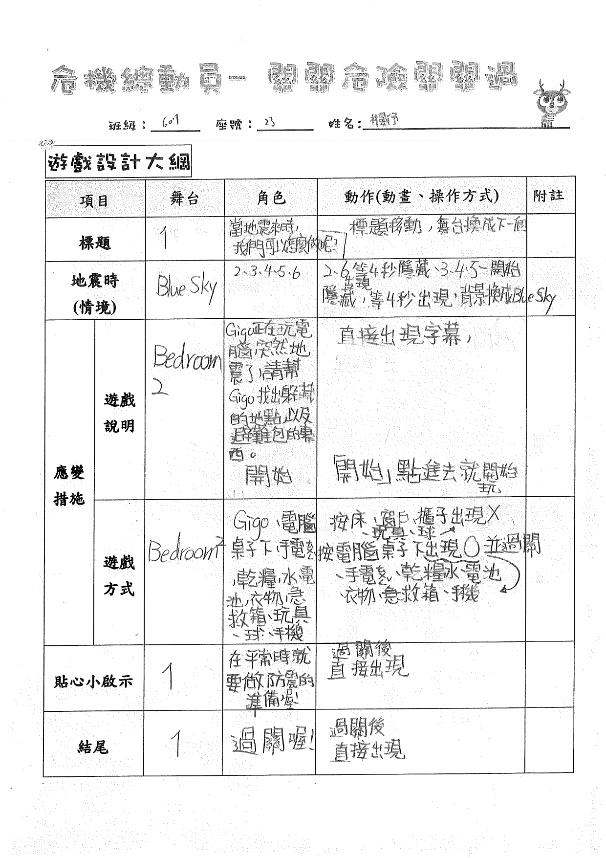 危機總動員-關關危險關關過
班級：607 座號：23 姓名：
遊戲設計大綱
項目 舞台 角色 動作(動畫、操作方式) 附註
標題 1 當地震來時，
我們可以怎麼做呢？
標題移動，舞台換成下一個
地震時
(情境)
Blue Sky
2、3、4、5、6
2、6等4秒隱藏、3、4、5一開始
隱藏，等4秒出現，背景換成Blue Sky
出現
應變
措施
遊戲
說明
Bedroom
2
Gigo正在玩電
腦，突然地
震了，請幫
Gigo找出躲藏
的地點，以及
避難包的東
西。
開始
直接出現字幕，
「開始」點進去就開始
玩
遊戲
方式
Bedroom2
Gigo、電腦
桌子下、手電筒
，乾糧、水、電
池、衣物、急
救箱、玩具
、球、手機
按床、窗戶、櫃子出現X
、玩具、球
按電腦桌子下出現○並過關
、手電筒、乾糧、水、電池
、衣物、急救箱、手機
貼心小啟示
1
在平常時就
要做防震的
準備喔!
過關後
直接出現
結尾
1
過關喔!
過關後
直接出現